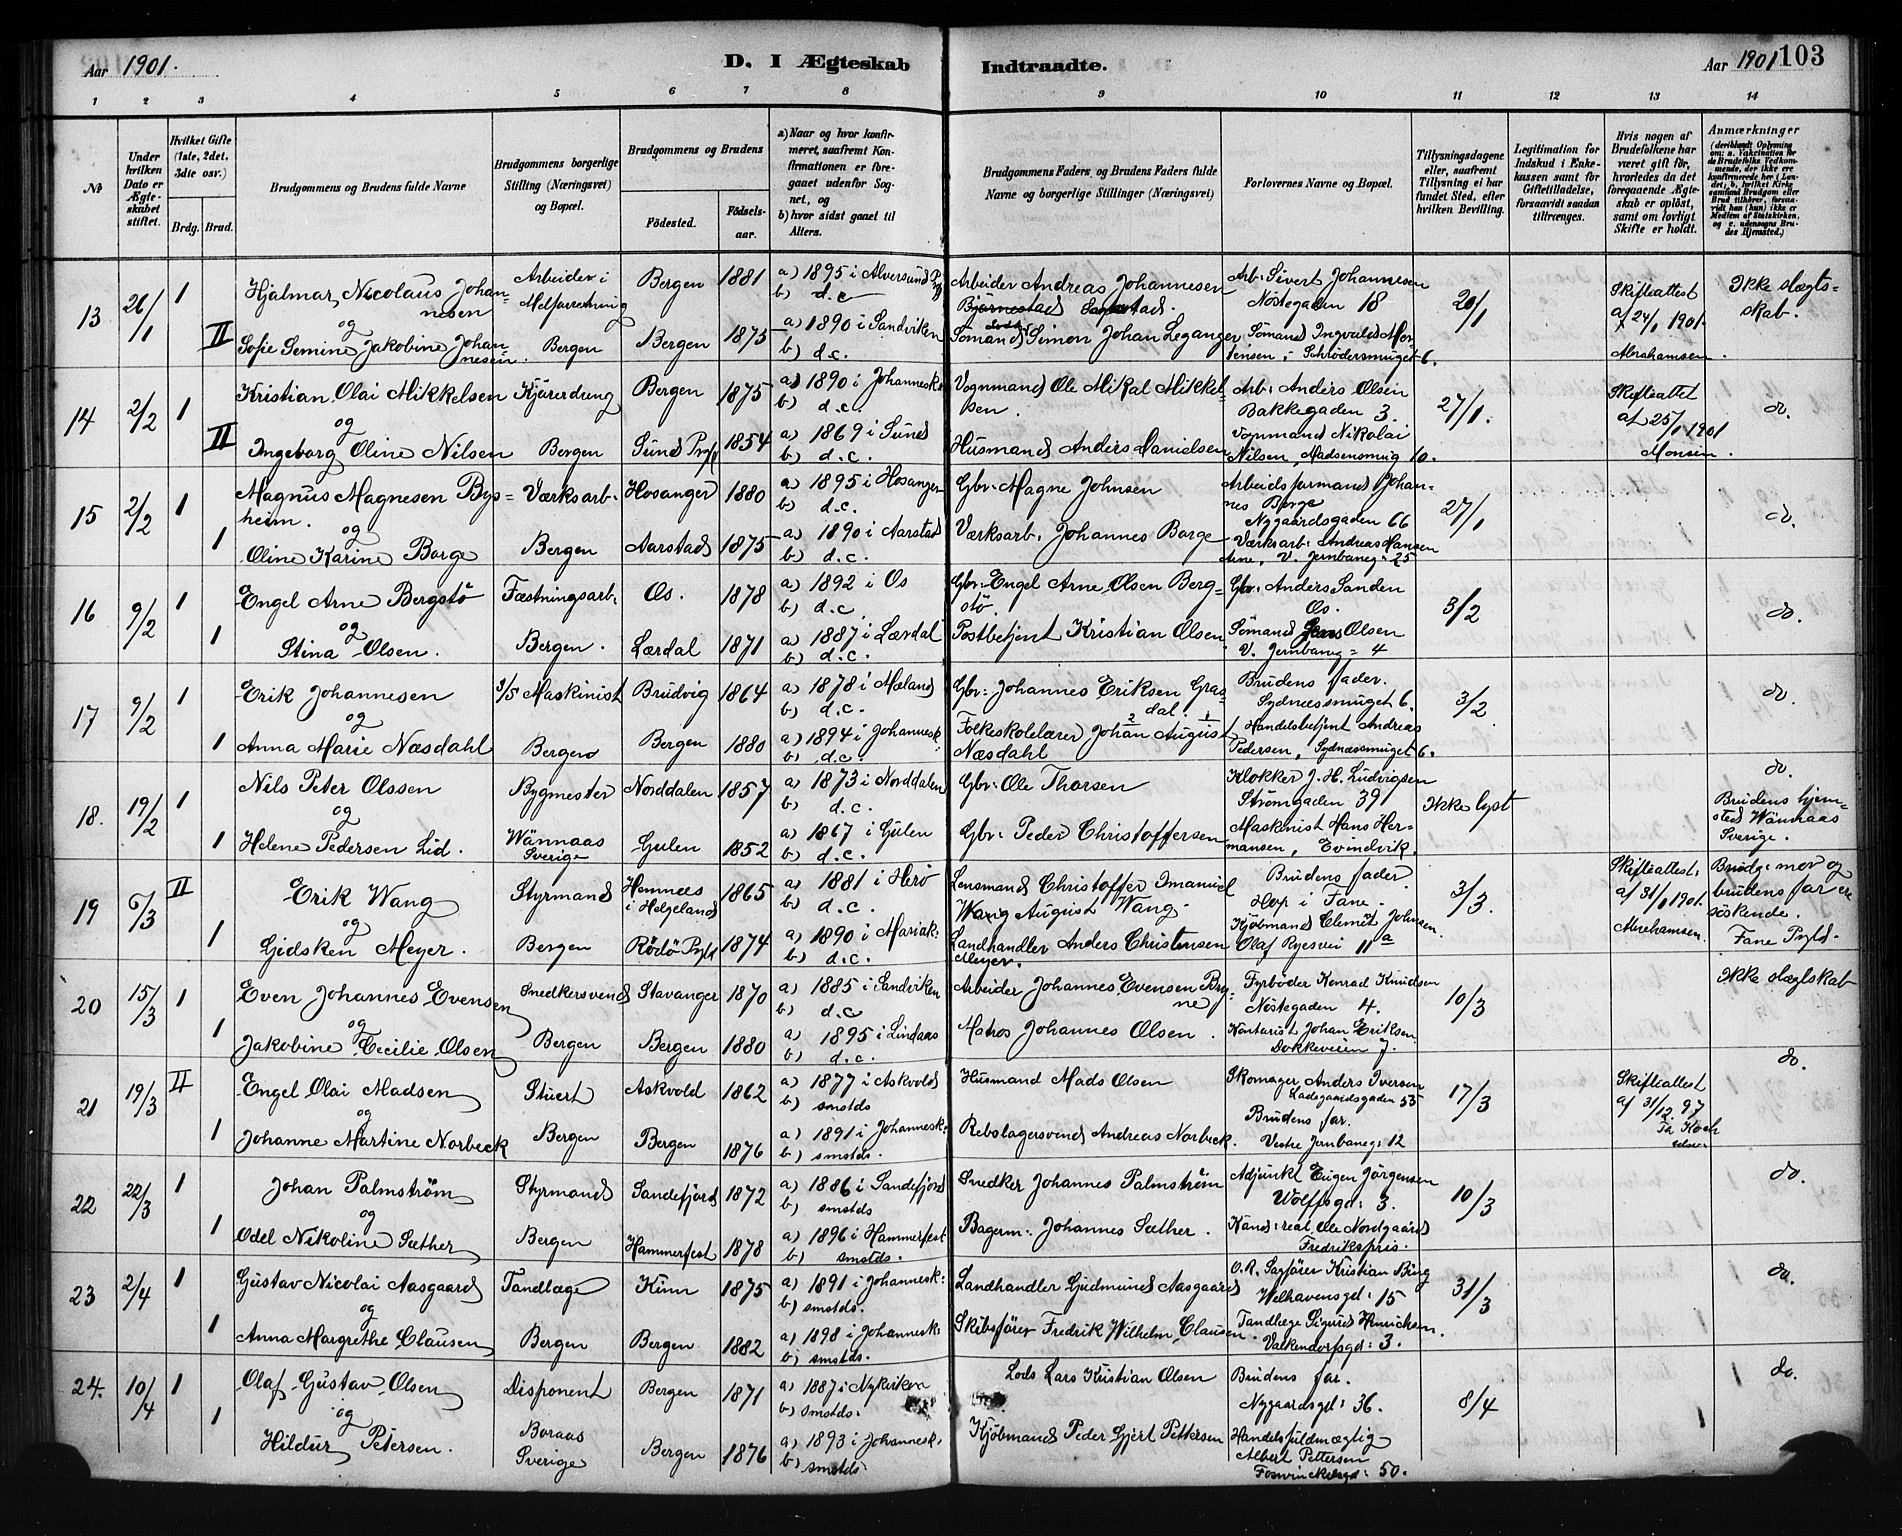 Aar 1901.
D. I Ægteskab Indtraadte.
Aar 1901 103
1 2 3 4 5 6 7 8 9 10 11 12 13 14
№
Under hvilken Dato er Ægteskabet stiftet.
Hvilket Gifte (1ste, 2det, 3die osv.)
Brdg. Brud.
Brudgommens og Brudens fulde Navne
Brudgommens borgerlige Stilling (Næringsvei) og Bopæl.
Brudgommens og Brudens
Fødested. Fødselsaar.
a) Naar og hvor konfirmeret, saafremt Konfirmationen er foregaaet udenfor Sognet, og
b) hvor sidst gaaet til Alters.
Brudgommens Faders, og Brudens Faders fulde Navne og borgerlige Stillinger (Næringsvei)
Forlovernes Navne og Bopæl.
Tillysningsdagene eller, saafremt Tillysning ei har fundet Sted, efter hvilken Bevilling.
Legitimation for Indskud i Enkekassen samt for Giftetilladelse, forsaavidt saadan tiltrænges.
Hvis nogen af Brudefolkene har været gift før, hvorledes da det foregaaende Ægteskab er opløst, samt om lovligt Skifte er holdt.
Anmærkninger (deriblandt Oplysning om: a. Vakcination for de Brudefolks Vedkommende, der ikke ere konfirmerede her i Landet; b. hvilket Kirkesamfund Brudgom eller Brud tilhører, forsaavidt han (hun) ikke er Medlem af Statskirken, og c. udensogns Brudes Hjemsted.)
13 26/1 1 Hjalmar Nicolaus Johannesen Arbeider i Melforretning Bergen 1881 a) 1895 i Alversund b) d.c Arbeider Andreas Johannesen Arb: Sivert Johannesen Nøstegaden 18 20/1 Skifteattest af 24/1 1901. Abrahamsen. Ikke slægtskab.
og
II Sofie Semine Jakobine Johannesen. Bergen Bergen 1875 a) 1890 i Sandviken b) d.c. Sømand Simon Johan Leganger Sømand Ingvald Mortensen, Schrødersmuget 6.
14 2/2 1 Kristian Olai Mikkelsen Kjøredreng Bergen 1875 a) 1890 i Johannesk: b) d.c. Vognmand Ole Mikal Mikkelsen. Arb: Anders Olsen Bakkegaden 3. 27/1. Skifteattet af 25/1 1901 Monsen. do.
og
II Ingeborg Oline Nilsen Bergen Sund Prgl 1854 a) 1869 i Sund b) d.c. Husmand Anders Danielsen Vognmand Nikolai Nilsen, Madsensmug 10.
15 2/2 1 Magnus Magnesen Bysheim. Værksarb. Hosanger 1880 a) 1895 i Hosanger b) d.c. Gbr: Magne Johnsen Arbeidsformand Johannes Borge Nygaardsgaden 66 27/1 do.
og
1 Oline Karine Borge Bergen Aarstad 1875 a) 1890 i Aarstad b) d.c. Værksarb. Johannes Borge Værksarb: Andreas Hansen Arne, V. Jernbaneg: 25
16 9/2 1 Engel Arne Bergstø Fæstningsarb: Os. 1878 a) 1892 i Os b) d.c. Gbr: Engel Arne Olsen Bergstø. Gbr: Anders Sanden Os. 3/2 do.
og
1 Stina Olsen. Bergen. Lærdal 1871 a) 1887 i Lærdal b) d.c. Postbetjent Kristian Olsen Sømand Jens Olsen V. Jernbaneg = 4
17 9/2 1 Erik Johannesen Maskinist Brudvig 1864 a) 1878 i Mæland b) d.c. Gbr: Johannes Eriksen Grasdal. Brudens fader. Sydnæssmuget 6. 3/2 do.
og
1 Anna Marie Næsdahl Bergen Bergen 1880 a) 1894 i Johannesk b) d.c. Folkeskolelærer Johan August Næsdahl Handelsbetjent Andreas Pedersen, Sydnæssmuget 6.
18. 19/2 1 Nils Peter Olssen Bygmester Norddalen 1857 a) 1873 i Norddalen b) d.c. Gbr: Ole Thorsen Klokker J. H. Ludvigsen Strømgaden 39 Ikke lyst do.
og
1 Helene Pedersen Lid. Wännaas Sverige Gulen 1852 a) 1867 i Gulen b) d.c. Gbr: Peder Christoffersen Maskinist Hans Hermansen, Evindvik. Brudens hjemsted Wännaas Sverige.
19 6/3 II Erik Wang Styrmand Hemnæs i Helgeland 1865 a) 1881 i Herø b) d.c. Lensmand Christoffer Imanuel Wang August Wang Brudens fader Hop i Fane. 3/3. Skifteattest: af 31/1 1901. Abrahamsen. Brudg: mor og brudens far ere søskende. Fane Prgld.
og
1 Gidsken Meyer. Bergen Rødø Prgld 1874 a) 1890 i Mariak: b) d.c. Landhandler Anders Christensen Meyer. Kjøbmand Clemet Johnsen. Olaf Ryesvei 11a
20 15/3 1 Even Johannes Evensen Snedkersvend Stavanger 1870 a) 1885 i Sandviken b) d.c Arbeider Johannes Evensen Bryne Fyrbøder Konrad Knudsen Nøstegaden 4. 10/3 Ikke slægtskab
og
1 Jakobine Cecilie Olsen Bergen Bergen 1880 a) 1895 i Lindaas b) d.c. Matros Johannes Olsen. Kontorist Johan Eriksen. Dokkeveien 7.
21 19/3 II Engel Olai Madsen Stuert Askvold 1862 a) 1877 i Askvold b) smstds Husmand Mads Olsen Skomager Anders Iversen Ladegaardsgaden 55 17/3 Skifteattest af 31/12 97 do.
og
1 Johanne Martine Norbeck Bergen Bergen 1876 a) 1891 i Johannesk: b) smstds. Rebslagersvend Andreas Norbeck. Brudens far. Vestre Jernbaneg: 12
22 22/3 1 Johan Palmstrøm Styrmand Sandefjord 1872 a) 1886 i Sandefjord b) smstds Snedker Johannes Palmstrøm Adjunkt Eugen Jørgensen Wolffsgd: 3. 10/3 do.
og
1 Odel Nikoline Sæther Bergen Hammerfest 1878 a) 1896 i Hammerfest b) smstds. Bagerm: Johannes Sæther. Kand: real. Ole Nordgaard Fredrikspris.
23 2/4 1 Gustav Nicolai Aasgaard Tandlæge Kinn 1875 a) 1891 i Johannesk: b) smstds. Landhandler Gudmund Aasgaard O.R. Sagfører Kristian Bing Welhavensgd: 15 31/3 do.
og
1 Anna Margrethe Clausen Bergen Bergen 1882 a) 1898 i Johannesk: b) smstds. Skibsfører Fredrik Wilhelm Clausen. Tandlæge Sigurd Henrichsen. Valkendorfsgd: 3.
24. 10/4 1 Olaf Gustav Olsen Disponent Bergen 1871 a) 1887 i Nykirken b) smstds: Lods Lars Kristian Olsen Brudens far. Nygaardsgd: 36. 8/4 do.
og
1 Hildur Petersen. Boraas Sverige Bergen 1876 a) 1893 i Johannesk. b) smstds: Kjøbmand Peder Gjert Pettersen Handelsfuldmægtig Albert Pettersen 50.